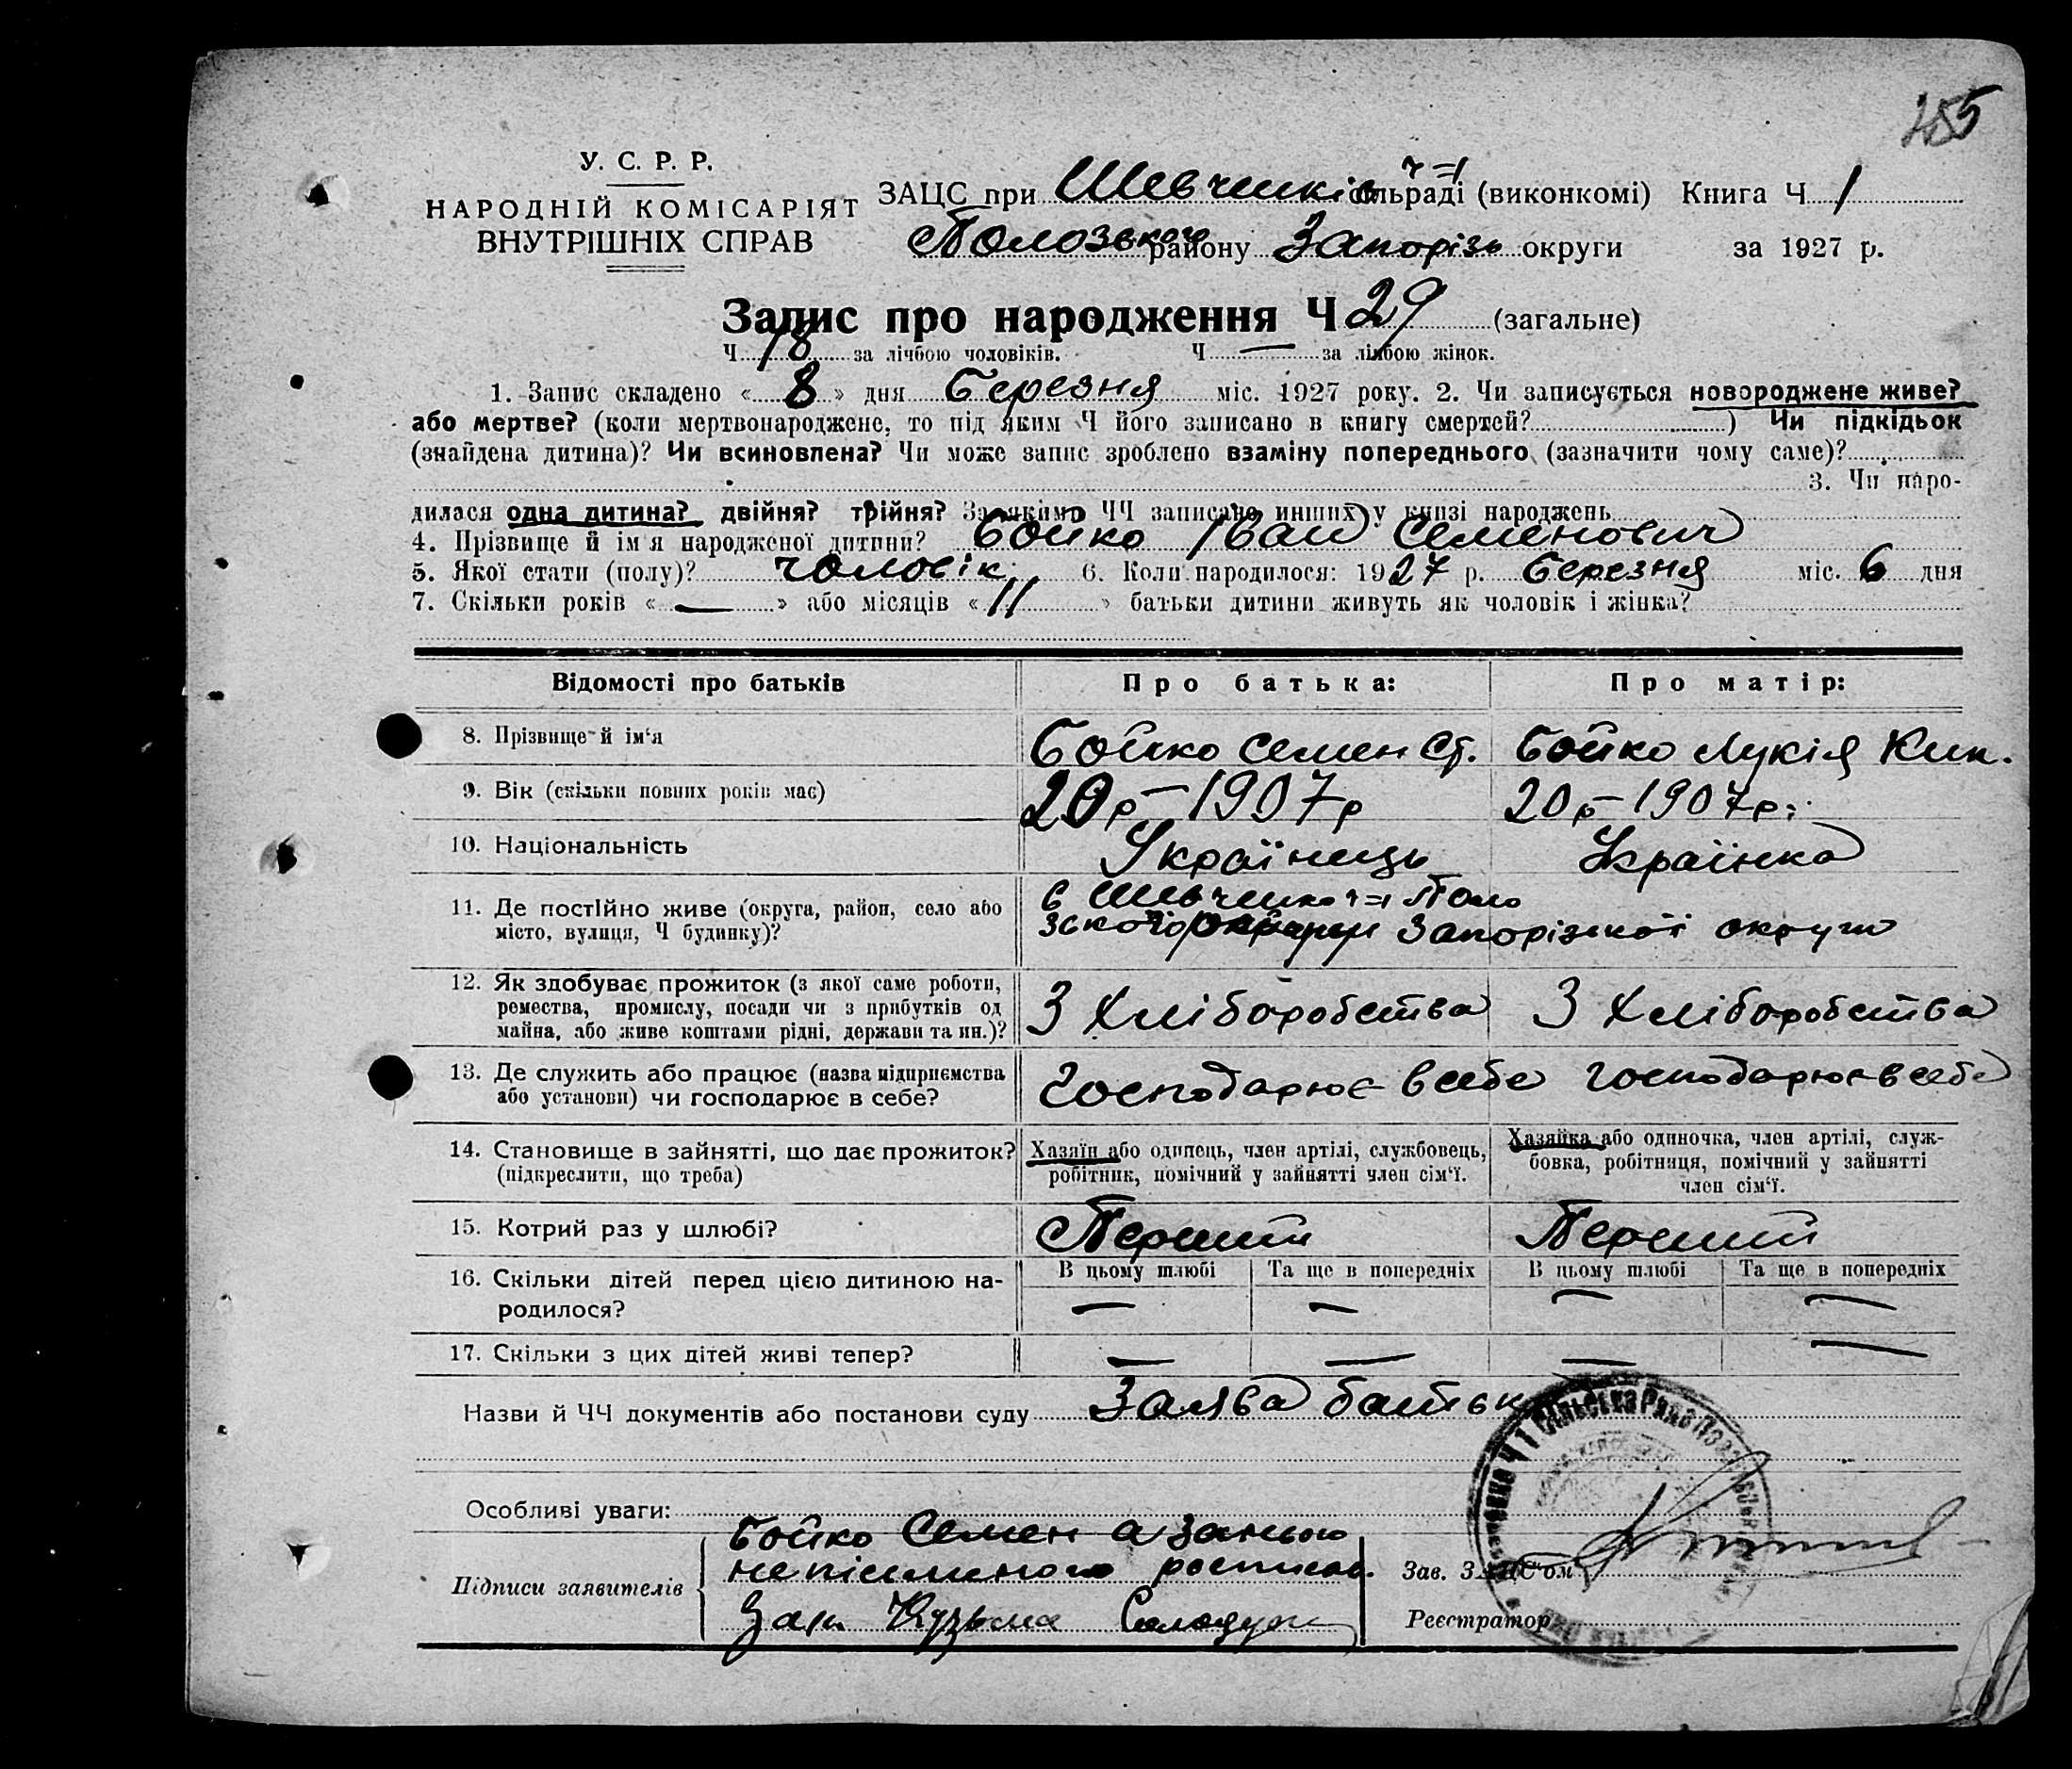 455
У. С. Р. Р.
НАРОДНІЙ КОМІСАРІЯТ
ВНУТРІШНІХ СПРАВ
ЗАЦС при Шевченків ч=1 сільраді (виконкомі) Книга Ч 1
Полозського району Запорізь округи за 1927 р.
Запис про народження Ч 29 (загальне)
Ч 18 за лічбою чоловіків. Ч — за лічбою жінок.
1. Запис складено «8» дня Березня міс. 1927 року. 2. Чи записується новороджене живе?
або мертве? (коли мертвонароджене, то під яким Ч його записано в книгу смертей?) Чи підкідьок
(знайдена дитина)? Чи всиновлена? Чи може запис зроблено взаміну попереднього (зазначити чому саме)?
3. Чи наро-
дилася одна дитина? двійня? трійня? За якими ЧЧ записано инших у книзі народжень
4. Прізвище й ім'я народженої дитини? Бойко Іван Семенович
5. Якої стати (полу)? чоловік 6. Коли народилося: 1927 р. Березня міс. 6 дня
7. Скільки років «—» або місяців «11» батьки дитини живуть як чоловік і жінка?
Відомості про батьків Про батька: Про матір:
8. Прізвище й ім'я Бойко Семен Ст. Бойко Лукія Кик.
9. Вік (скільки повних років має) 20 р – 1907 р 20 р – 1907 р.
10. Національність Українець Українка
11. Де постійно живе (округа, район, село або
місто, вулиця, Ч будинку)? с Шевченко ч=1 Поло
зького Запорізкої округи
12. Як здобуває прожиток (з якої саме роботи,
ремества, промислу, посади чи з прибутків од
майна, або живе коштами рідні, держави та ин.)? З Хліборобства З Хліборобства
13. Де служить або працює (назва підприємства
або установи) чи господарює в себе? господарює в себе господарює в себе
14. Становище в зайнятті, що дає прожиток?
(підкреслити, що треба)
Хазяїн або одинець, член артілі, службовець,
робітник, помічний у зайнятті член сім'ї.
Хазяйка або одиночка, член артілі, служ-
бовка, робітниця, помічний у зайнятті
член сім'ї.
15. Котрий раз у шлюбі? Перший Перший
16. Скільки дітей перед цією дитиною на-
родилося?
В цьому шлюбі Та ще в попередніх В цьому шлюбі Та ще в попередніх
— — — —
17. Скільки з цих дітей живі тепер? — — — —
Назви й ЧЧ документів або постанови суду Заява батьк
Особливі уваги:
Підписи заявителів
Бойко Семен а за нього
непісьменого росписав.
Кузьма
Зав. ЗАЦС'ом
Реєстратор
Ч 1 Сільська Рада